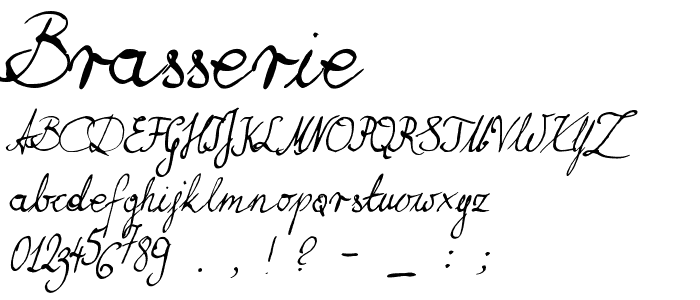 Brasserie
ABCDEFGHIJKLMNOPQRSTUVWXYZ
abcdefghijklmnopqrstuvwxyz
0123456789 . , ! ? - _ : ;